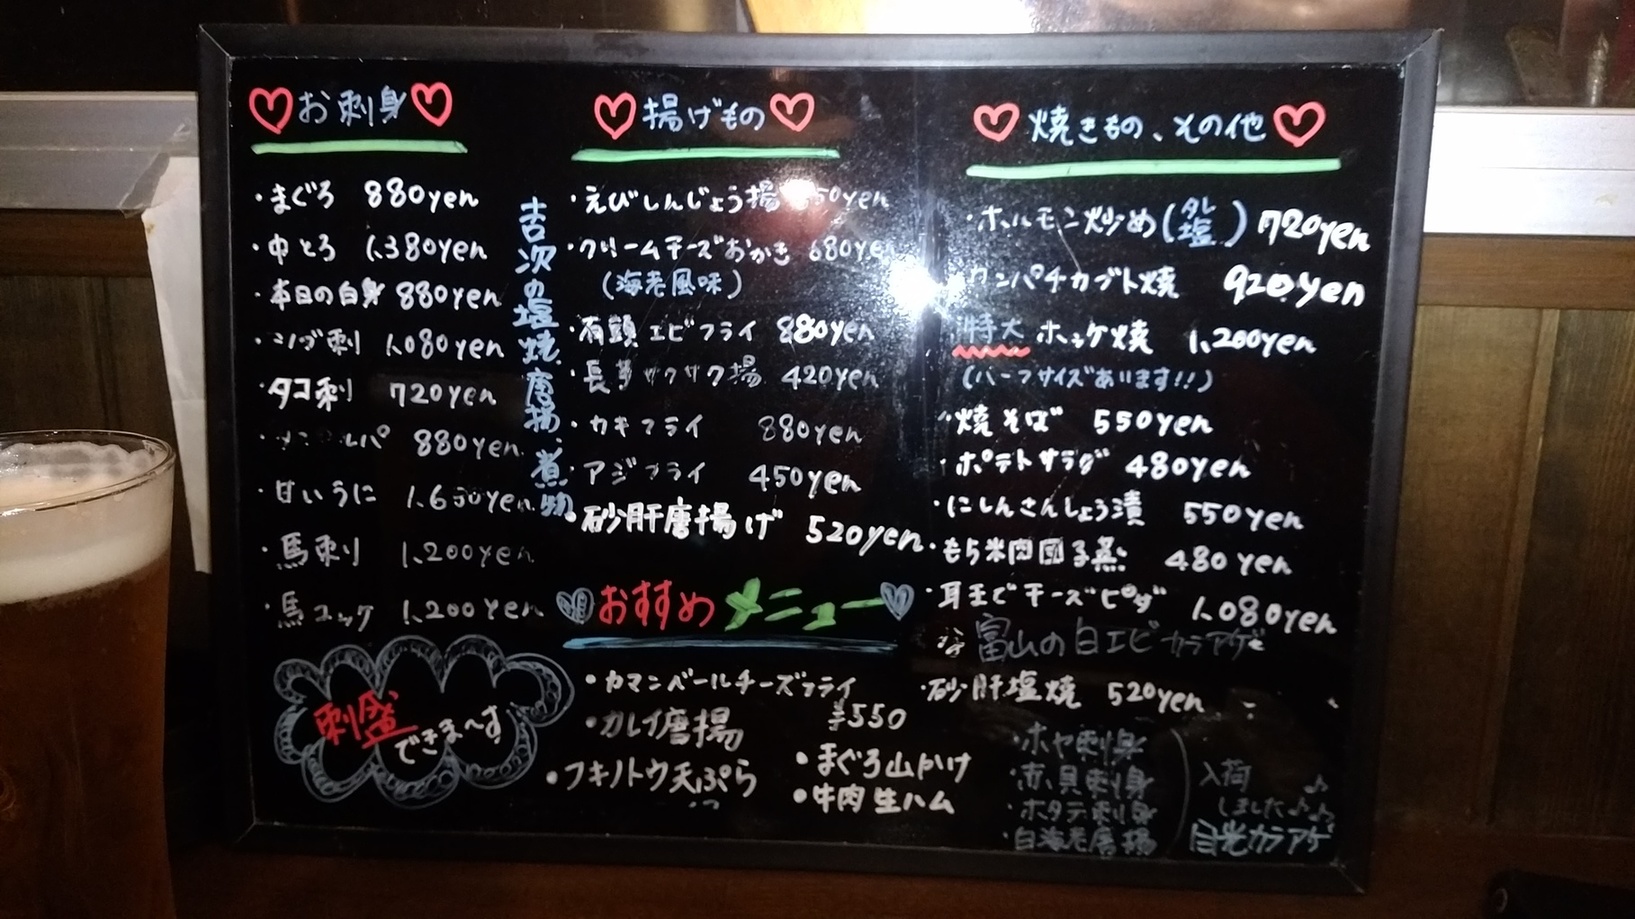 お刺身
・まぐろ 880yen
・中とろ 1,380yen
・本日の白身 880yen
刺 1,080yen
・タコ刺 720yen
880yen
・甘いうに 1,650yen
・馬刺り 1,200yen
・馬ユッケ 1,200yen
刺盛できま〜す
古次の塩焼、唐揚、煮物
揚げもの
・えびしんじょう揚 50yen
・クリームチーズおかき 680yen
(海老風味)
・有頭エビフライ 880yen
・長芋サクサク揚 420yen
・カキフライ 880yen
・アジフライ 450yen
・砂肝唐揚げ 520yen
おすすめメニュー
・カマンベールチーズフライ
¥550
・カレイ唐揚
・フキノトウ天ぷら
・まぐろ山かけ
・牛肉生ハム
焼きもの、その他
・ホルモン炒め(タレ 塩) 720yen
ワンパチカブト焼 920yen
特大 ホッケ焼 1,200yen
(ハーフサイズあります!!)
・焼そば 550yen
・ポテトサラダ 480yen
・にしんさんしょう漬 550yen
・もち米肉団子蒸 480yen
・耳までチーズピザ 1,080yen
富山の白エビカラアゲ
・砂肝塩焼 520yen
・ホヤ刺身
・赤貝刺身
・ホタテ刺身
・白海老唐揚
入荷♪
しました♪♪
目光カラアゲ